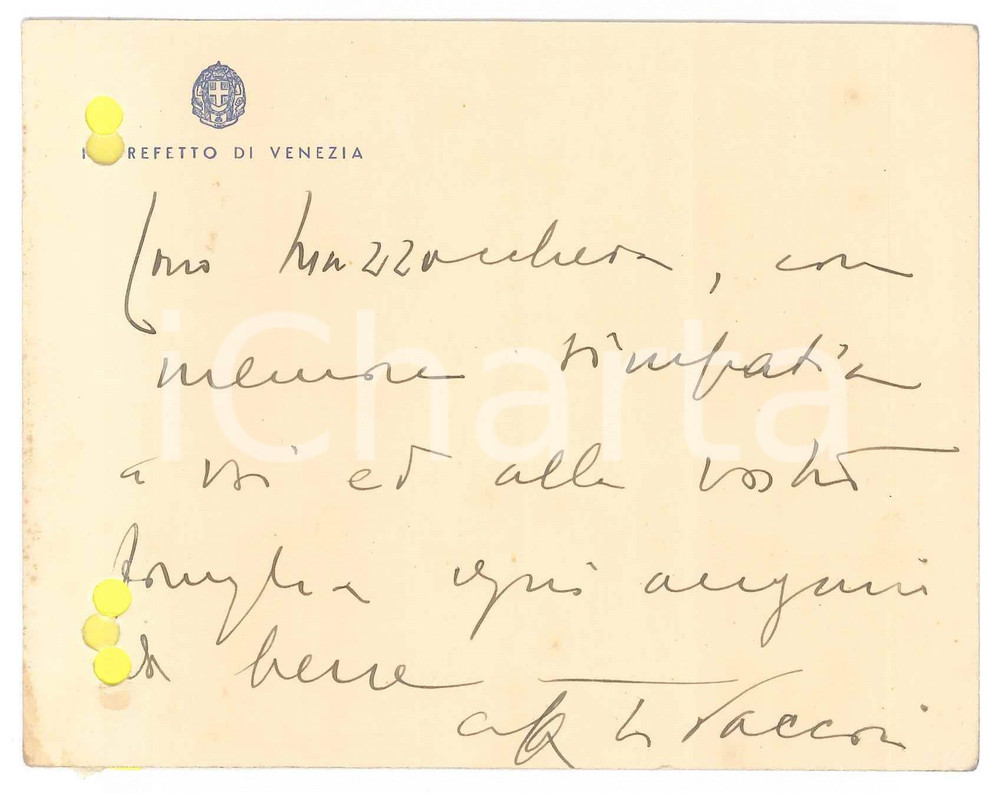 REFETTO DI VENEZIA
Mazzucchera, con
memore simpatia
a voi ed alla vostra
famiglia ogni augurio
di bene
iCharta